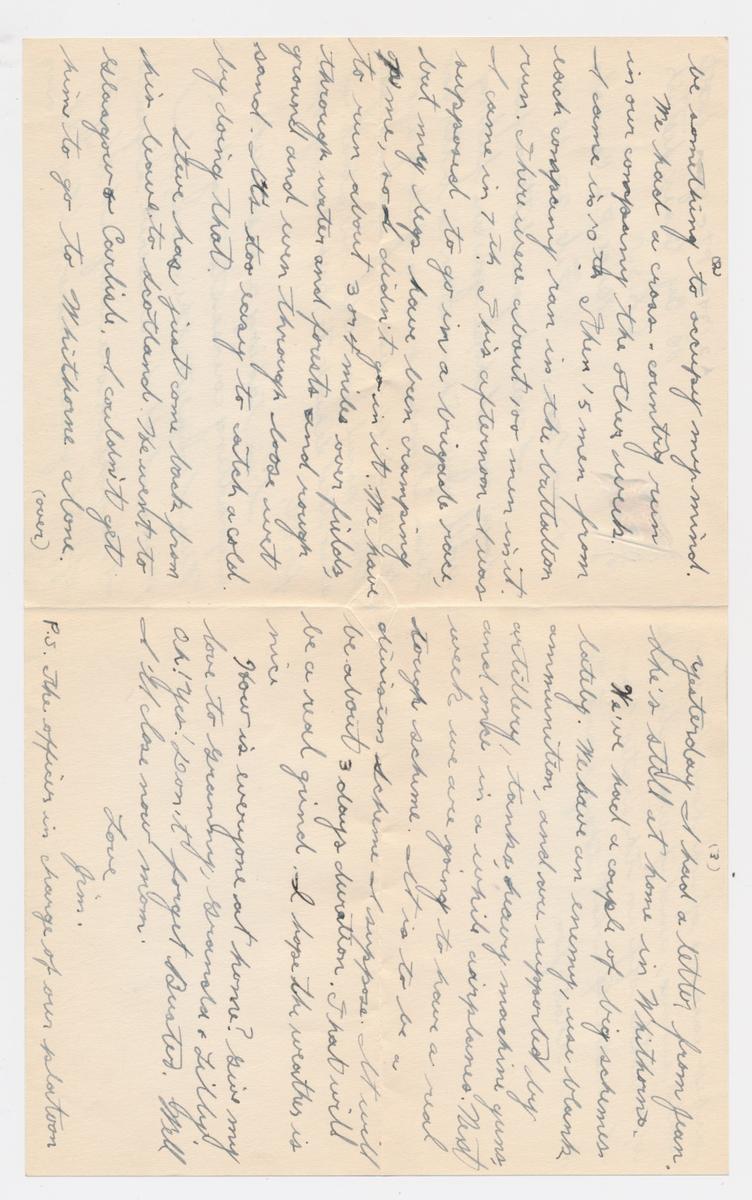 (2)
be something to occupy my mind.
We had a cross-country run
in our company the other week.
I came in 10th. Then 15 men from
each company ran in the battalion
run. There were about 100 men in it.
I came in 7th. This afternoon I was
supposed to go in a brigade race,
but my legs have been cramping
me, so I didn't go in it. We have
to run about 3 or 4 miles over fields,
through water and forists and rough
ground and even through loose wet
sand. It's too easy to catch a cold
by doing that.
Steve has just come back from
his leave to Scotland. He went to
Glasgow & Carlisle. I couldn't get
him to go to Whithorne alone.
(over)
(3)
yesterday I had a letter from Jean.
She's still at home in Whithorne.
We've had a couple of big schemes
lately. We have an enemy, use blank
ammunition, and are supported by
artillery, tanks, heavy machine guns
and onke in a while airplanes. Next
week we are going to have a real
tough scheme. It is to be a
division scheme I suppose. It will
be about 3 days duration. That will
be a real grind. I hope the weather is
nice
How is everyone at home? Give my
love to Granny, Grandd & Lilly!
Oh! Yes! Don't forget Busted. Well
I'll close now mom.
Love
Jim.
P.S. The officer in charge of our platoon